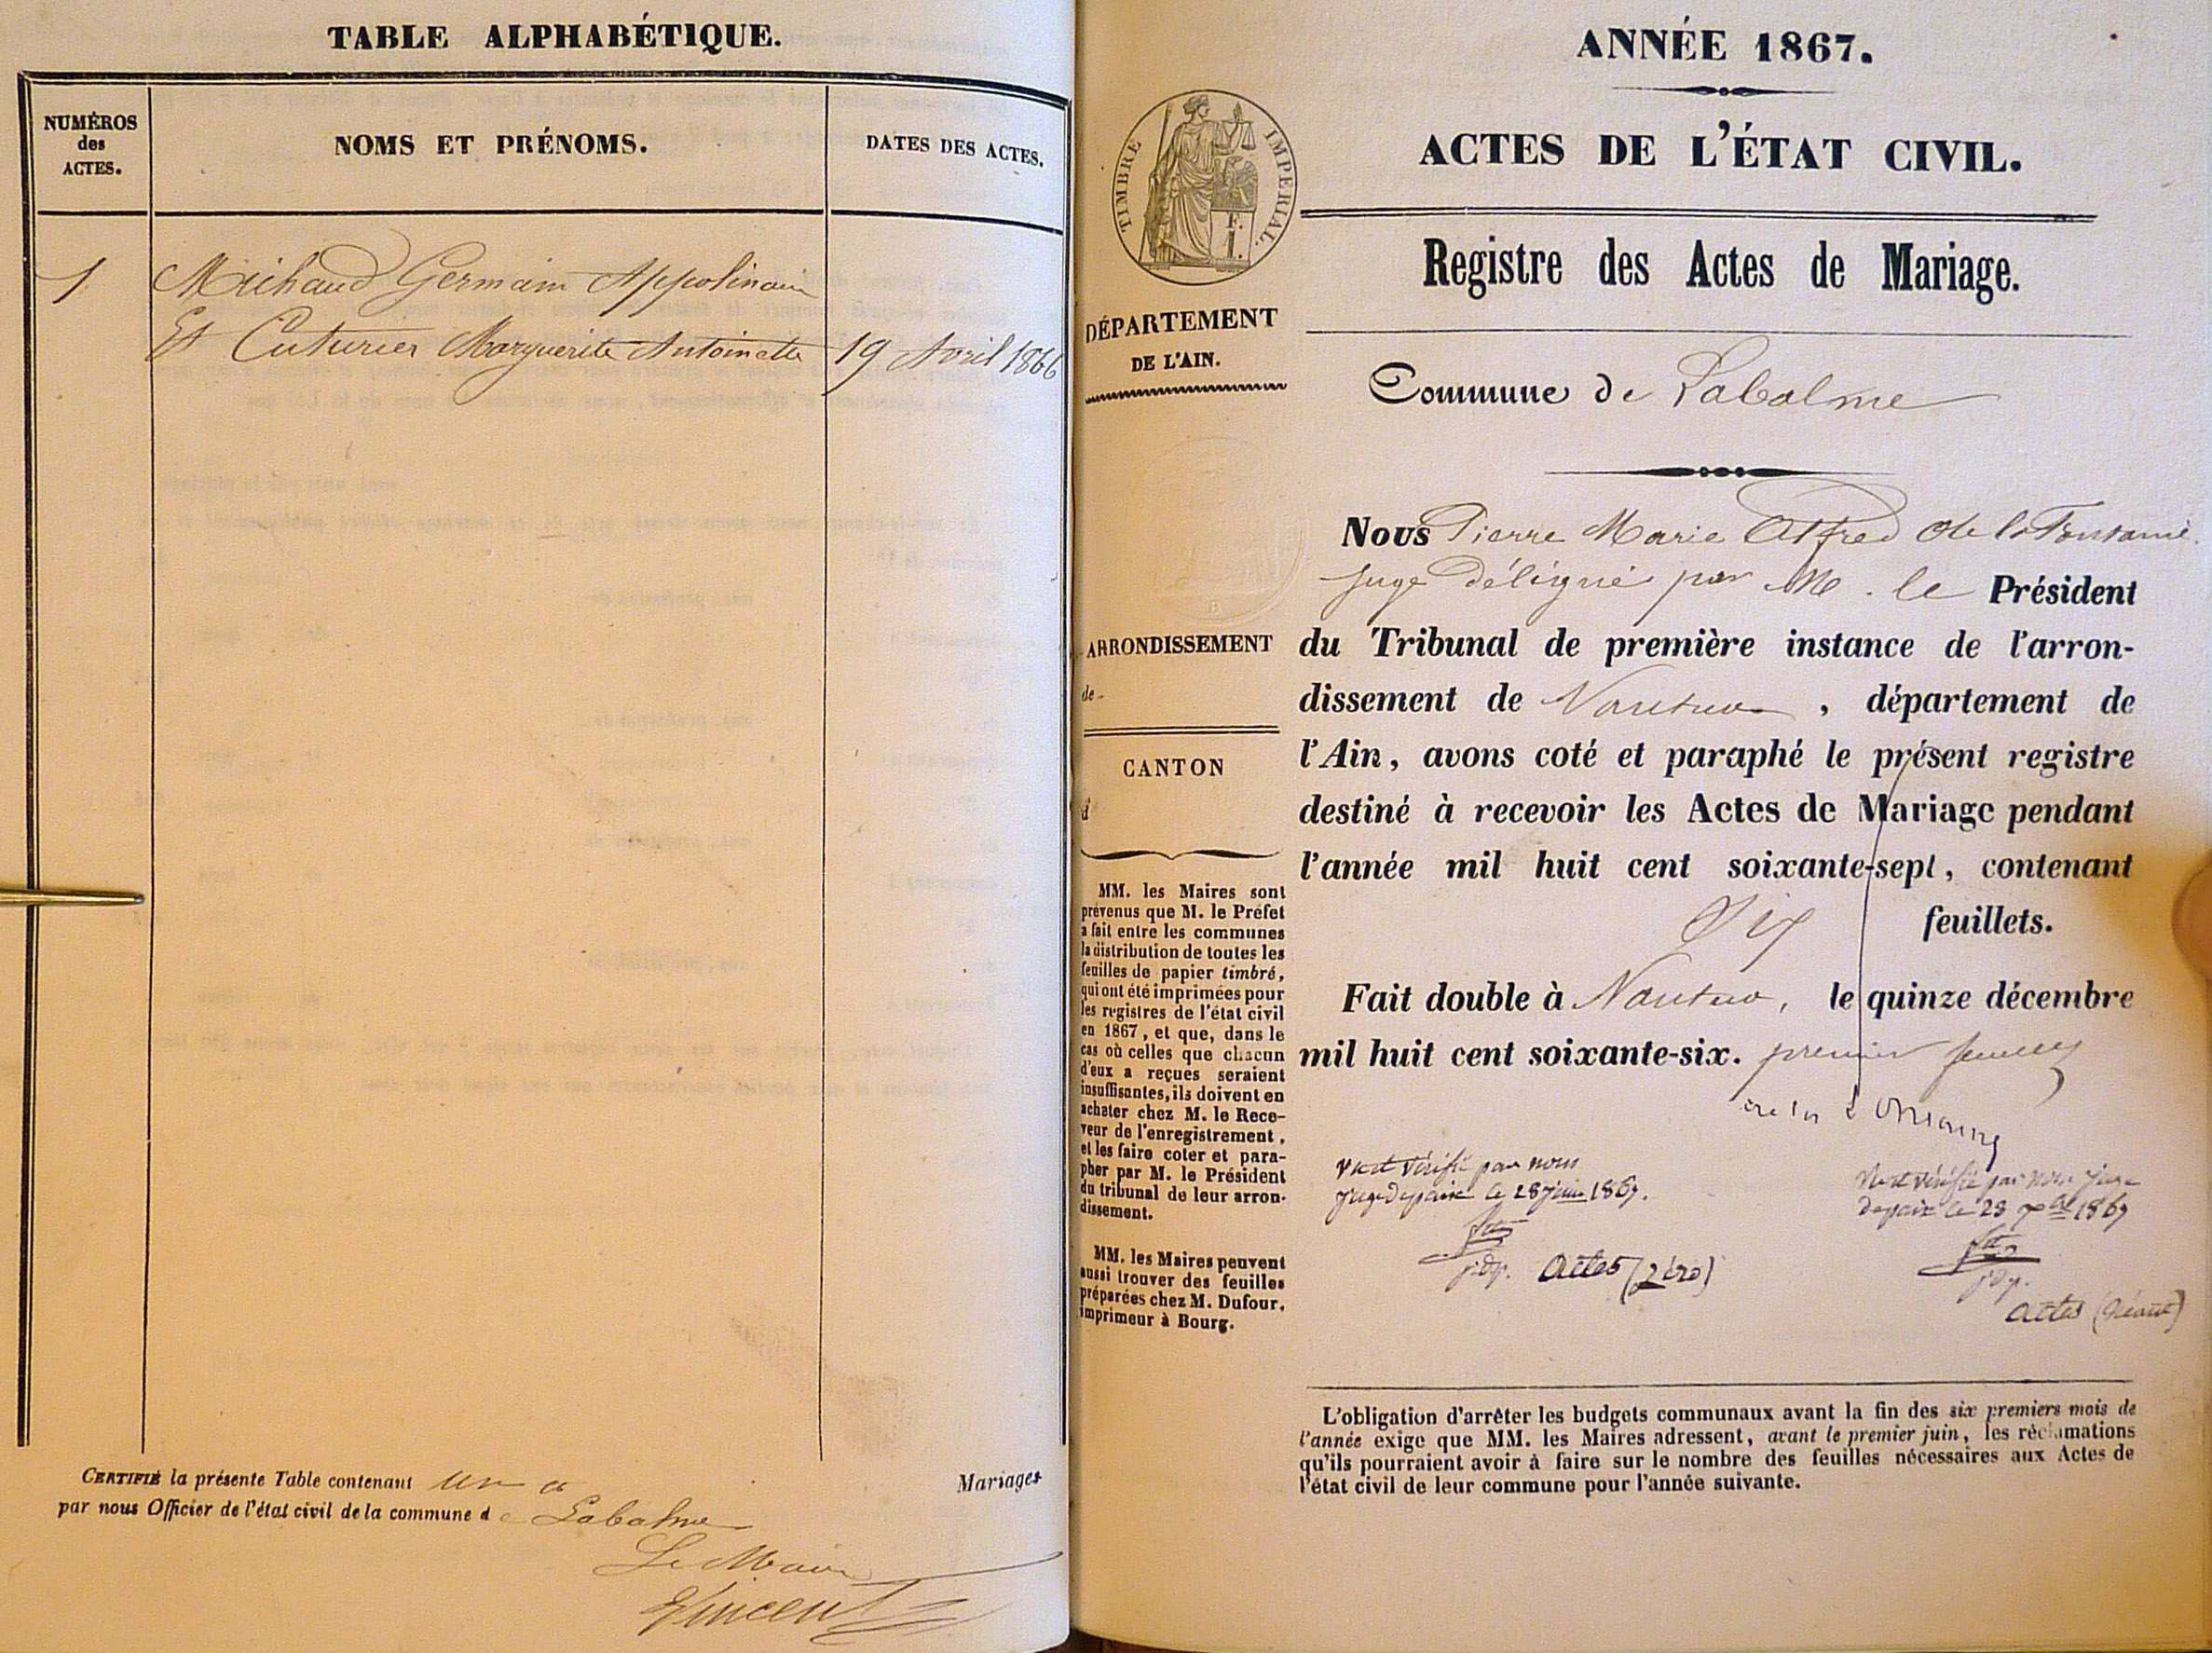 TABLE ALPHABÉTIQUE.
NUMÉROS
des
ACTES.
NOMS ET PRÉNOMS.
DATES DES ACTES.
1 Michaud Germain Appolinair
Et Cuturier Marguerite Antoinette 19 Avril 1866
CERTIFIÉ la présente Table contenant un Mariages
par nous Officier de l'état civil de la commune de Labalme
Le Maire
Vincent
ANNÉE 1867.
ACTES DE L'ÉTAT CIVIL.
TIMBRE IMPÉRIAL.
F.
1.
Registre des Actes de Mariage.
DÉPARTEMENT
DE L'AIN.
Commune de Labalme
Nous Pierre Marie Alfred de la Fontaine
juge délégué par M. le Président
du Tribunal de première instance de l'arron-
dissement de Nantua, département de
l'Ain, avons coté et paraphé le présent registre
destiné à recevoir les Actes de Mariage pendant
l'année mil huit cent soixante-sept, contenant
Six feuillets.
Fait double à Nantua, le quinze décembre
mil huit cent soixante-six. premier feuillet
Vu et vérifié par nous
juge de paix le 28 juin 1867.
j.d.p. Actes (zéro)
Vu et vérifié par nous juge
de paix le 28 Xbre 1867
j.d.p.
Actes (néant)
ARRONDISSEMENT
de
CANTON
d'
MM. les Maires sont
prévenus que M. le Préfet
a fait entre les communes
la distribution de toutes les
feuilles de papier timbré,
qui ont été imprimées pour
les registres de l'état civil
en 1867, et que, dans le
cas où celles que chacun
d'eux a reçues seraient
insuffisantes, ils doivent en
acheter chez M. le Rece-
veur de l'enregistrement,
et les faire coter et para-
pher par M. le Président
du tribunal de leur arron-
dissement.
MM. les Maires peuvent
aussi trouver des feuilles
préparées chez M. Dufour,
imprimeur à Bourg.
L'obligation d'arrêter les budgets communaux avant la fin des six premiers mois de
l'année exige que MM. les Maires adressent, avant le premier juin, les réclamations
qu'ils pourraient avoir à faire sur le nombre des feuilles nécessaires aux Actes de
l'état civil de leur commune pour l'année suivante.